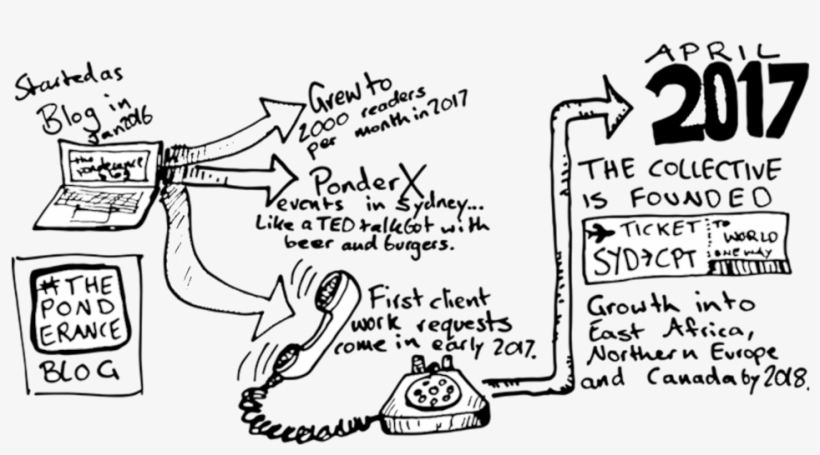 Started as
Blog in
Jan 2016
the
ponderance
blog
#THE
POND
ERANCE
BLOG
Grew to
2000 readers
per month in 2017
PonderX
events in Sydney...
Like a TED talk but with
beer and burgers.
First client
work requests
come in early 2017.
APRIL
2017
THE COLLECTIVE
IS FOUNDED
TICKET
SYD→CPT
TO
WORLD
ONE WAY
Growth into
East Africa,
Northern Europe
and Canada by 2018.